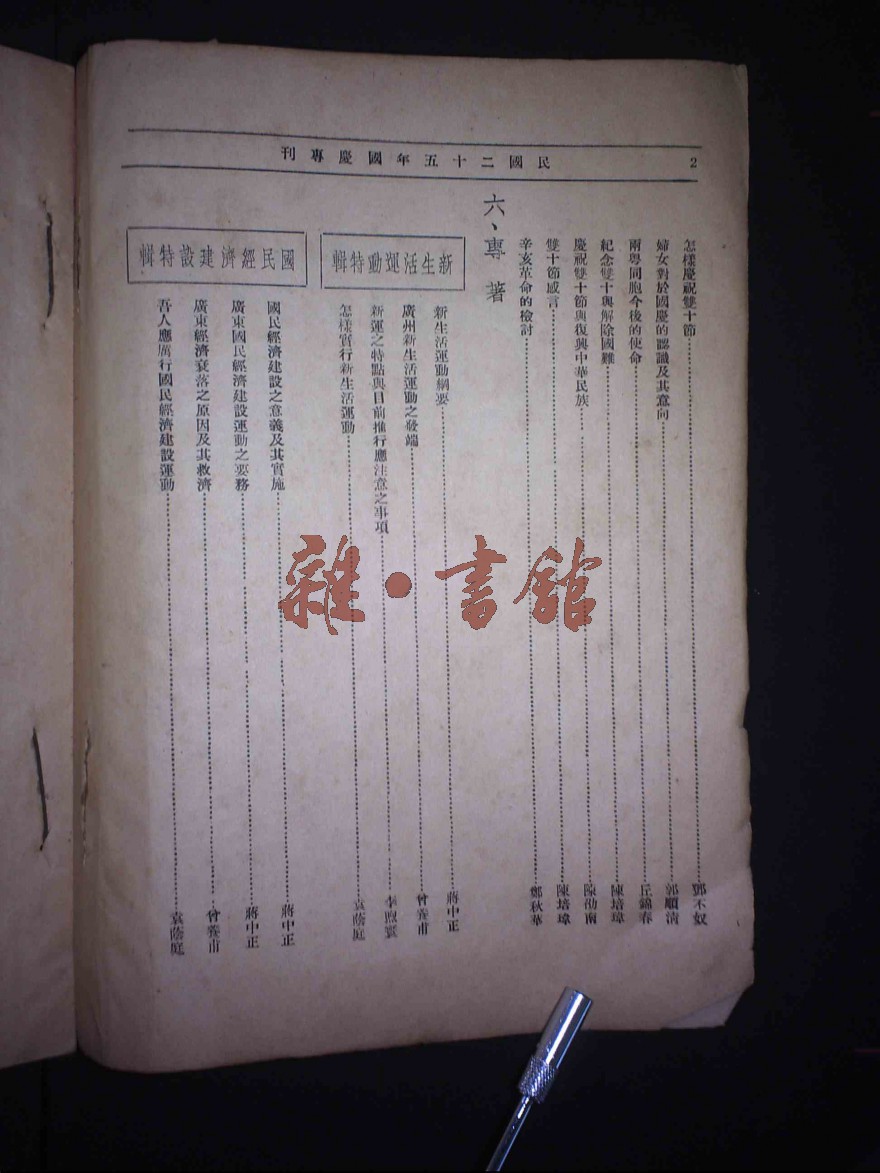 民國二十五年國慶專刊
2
怎樣慶祝雙十節 鄧不奴
婦女對於國慶的認識及其意向 郭順清
兩粵同胞今後的使命 丘錦春
紀念雙十與解除國難 陳培瑋
慶祝雙十節與復興中華民族 陳泑南
雙十節感言 陳培瑋
辛亥革命的檢討 鄭秋華
六、專著
新生活運動特輯
新生活運動綱要 蔣中正
廣州新生活運動之發端 曾養甫
新運之特點與目前推行應注意之事項 李煦寰
怎樣實行新生活運動 袁蔭庭
國民經濟建設特輯
國民經濟建設之意義及其實施 蔣中正
廣東國民經濟建設運動之要務 蔣中正
廣東經濟衰落之原因及其救濟 曾養甫
吾人應厲行國民經濟建設運動 袁蔭庭
雜·書館